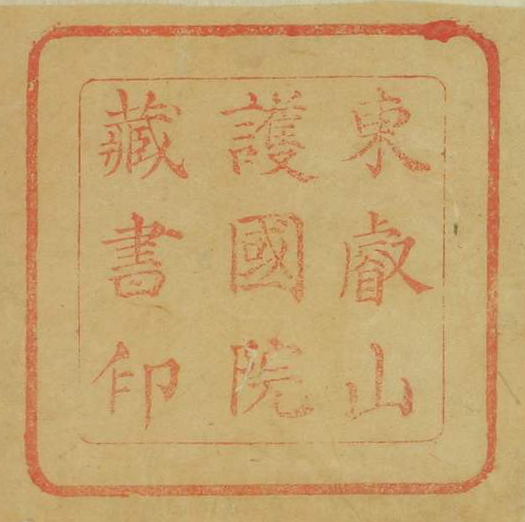 東叡山
護國院
藏書印